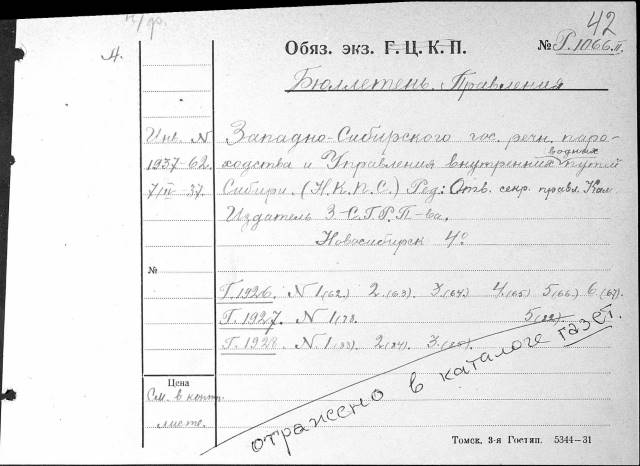 н/фр.
42
4.
Обяз. экз. Г. Ц. К. П. № Г. 1066 п.
Бюллетень. Правления
Инв. N Западно-Сибирского гос. речн. паро-
водных
1937-62. ходства и Управления внутренних путей
7/III 37. Сибири. (Н.К.П.С.) Ред: Отв. секр. правл. Кам.
Издатель З-С.Г.Р.П-ва.
Новосибирск 4°
№
Г. 1926. N 1(62) 2.(63). 3.(64.) 4.(65) 5(66.) 6.(67).
Г. 1927. N 1(78. 5(82).
Г. 1928. N. 1.(83). 2(84). 3.
отражено в каталоге газет.
Цена
См. в конт.
листе.
Томск. 3-я Гостип. 5344—31